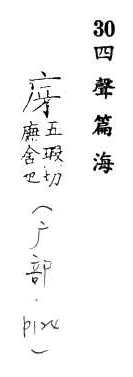 30四聲篇海
庌五瑕切
廡舍也
(广部.p124)